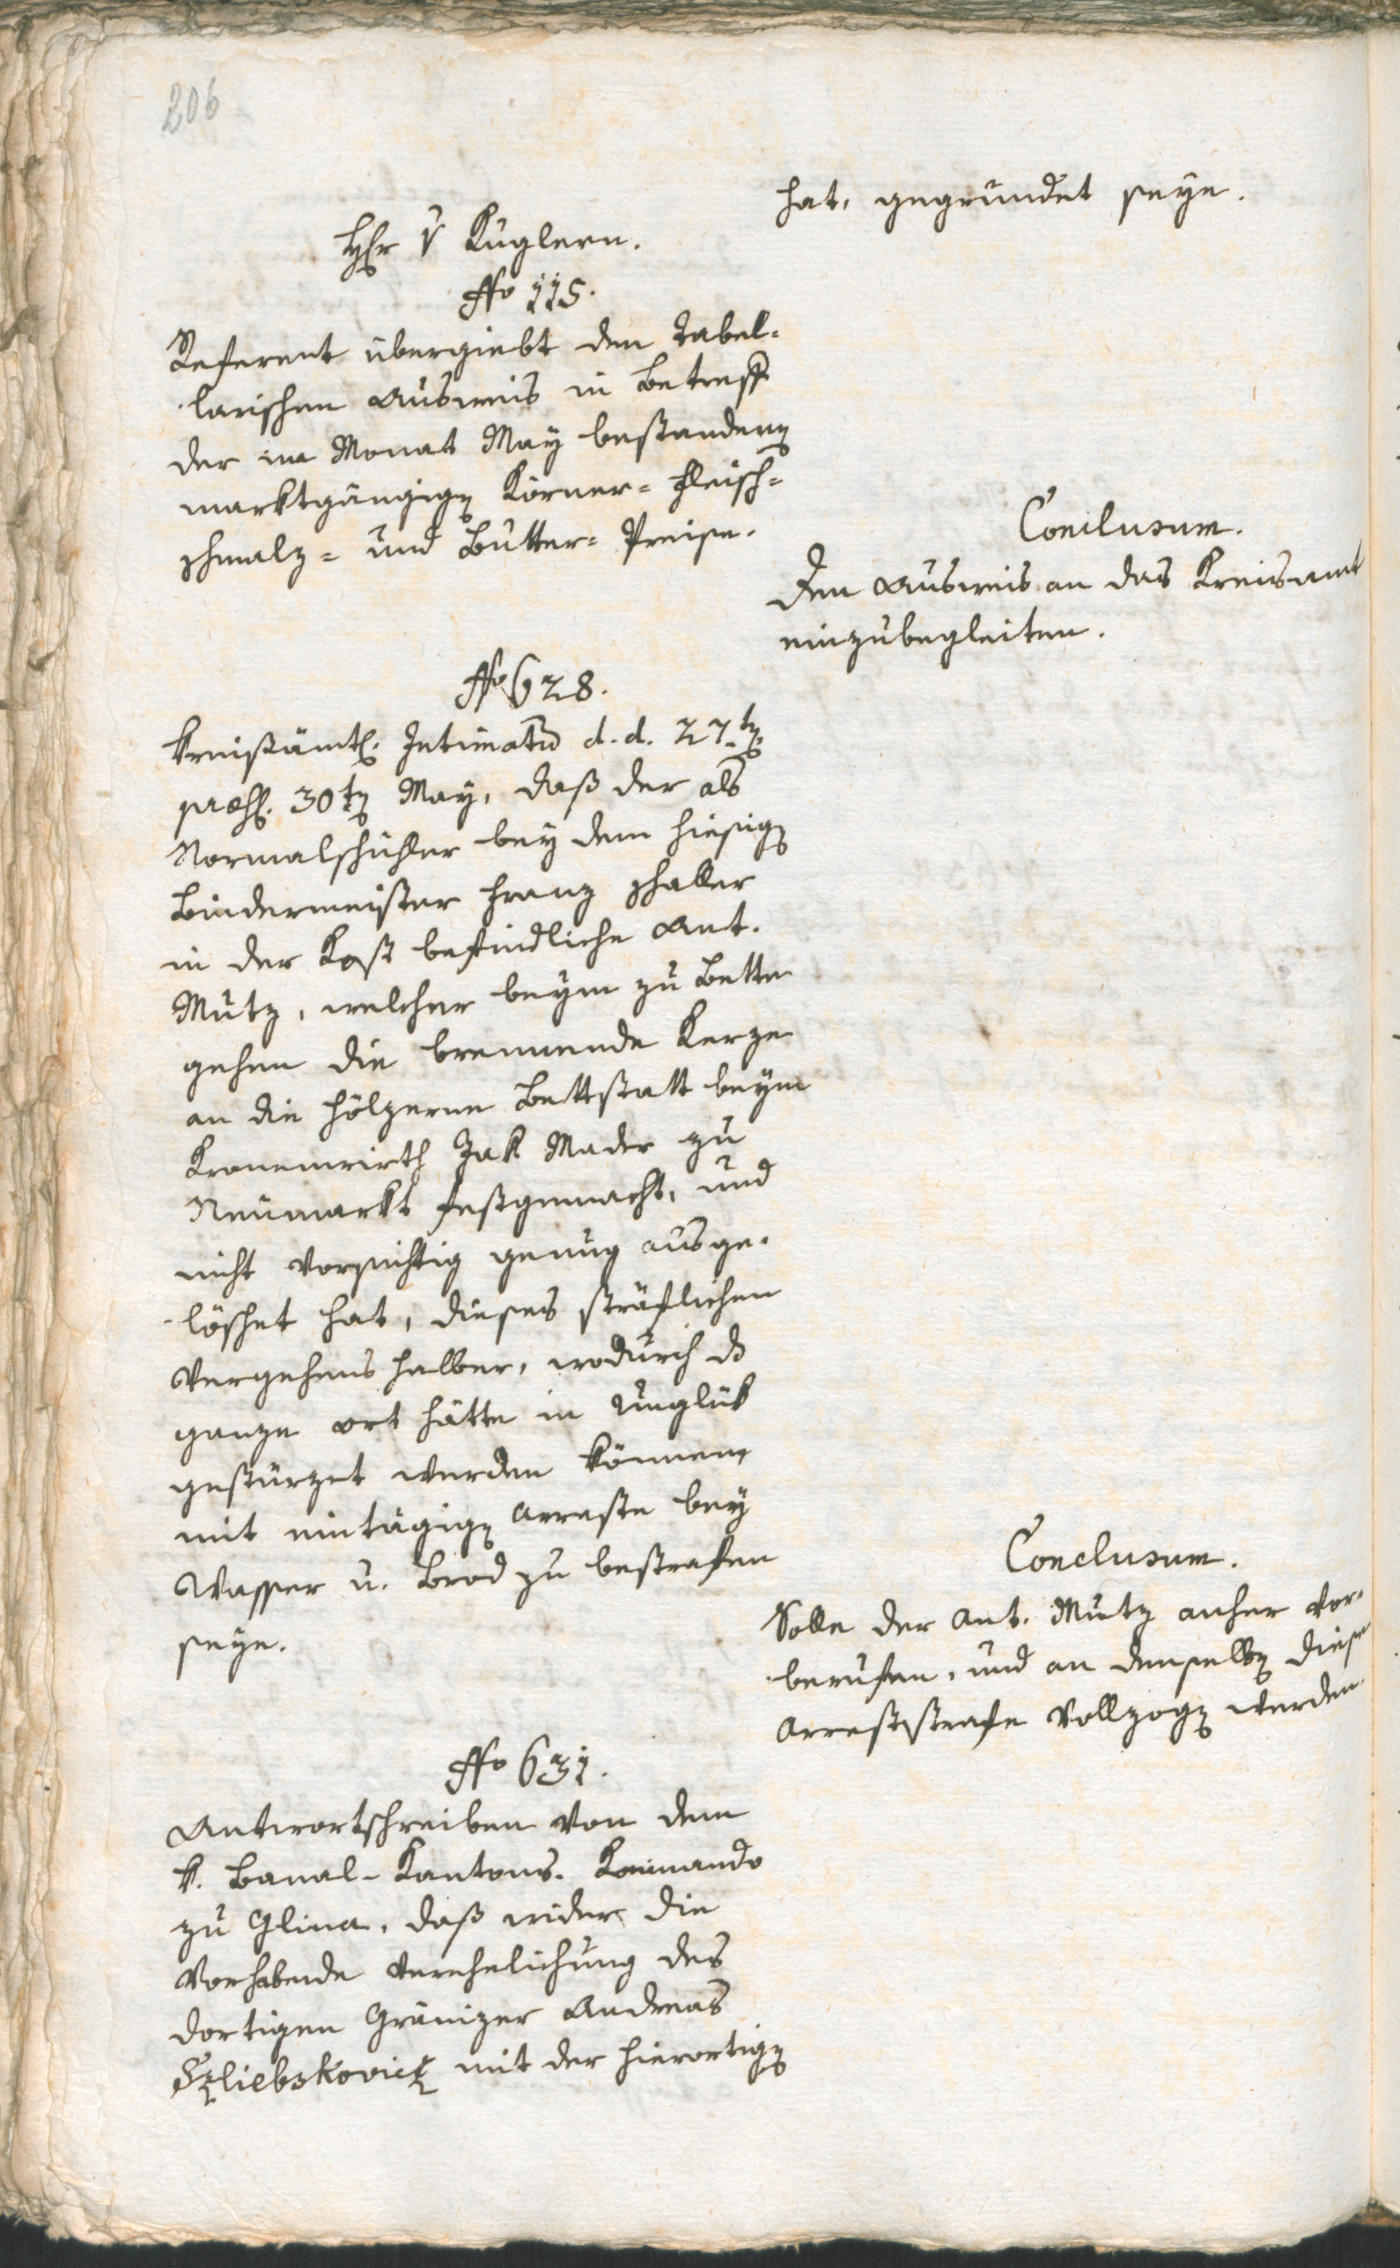 206
hat, gegründet seye.
Hr v Kuglern.
No 115.
Referent übergiebt den Tabel-
larischen Ausweis in Betreff
der im Monat May bestandenen
marktgängigen Körner- Fleisch-
schmalz- und Butter- Preise.
Conclusum.
Den Ausweis an das Kreisamt
einzubegleiten.
No 628.
Kreisämtl. Intimatum d. d. 27ten
praes. 30ten May, daß der als
Normalschühler bey dem hiesigen
Bindermeister Franz Schaller
in der Kost befindliche Ant.
Mutz, welcher beym zu Bette
gehen die brennende Kerze
an die hölzerne Bettstatt beym
Kronenwirth Jak Mader zu
Neumarkt festgemacht, und
nicht vorsichtig genug ausge-
löschet hat, dieses sträflichen
Vergehens halber, wodurch das
ganze Ort hätte in Unglük
gestürzet werden können,
mit eintägigen Arreste bey
Wasser u. Brod zu bestrafen
seye.
Conclusum.
Solle der Ant. Mutz anher vor-
berufen, und an denselben diese
Arreststrafe vollzogen werden.
No 631.
Antwortschreiben von dem
k. Banal-Kantons-Kommando
zu Glina, daß wider die
vorhabende Verehelichung des
dortigen Gränizer Andreas
Szliebskovicz mit der hierortigen